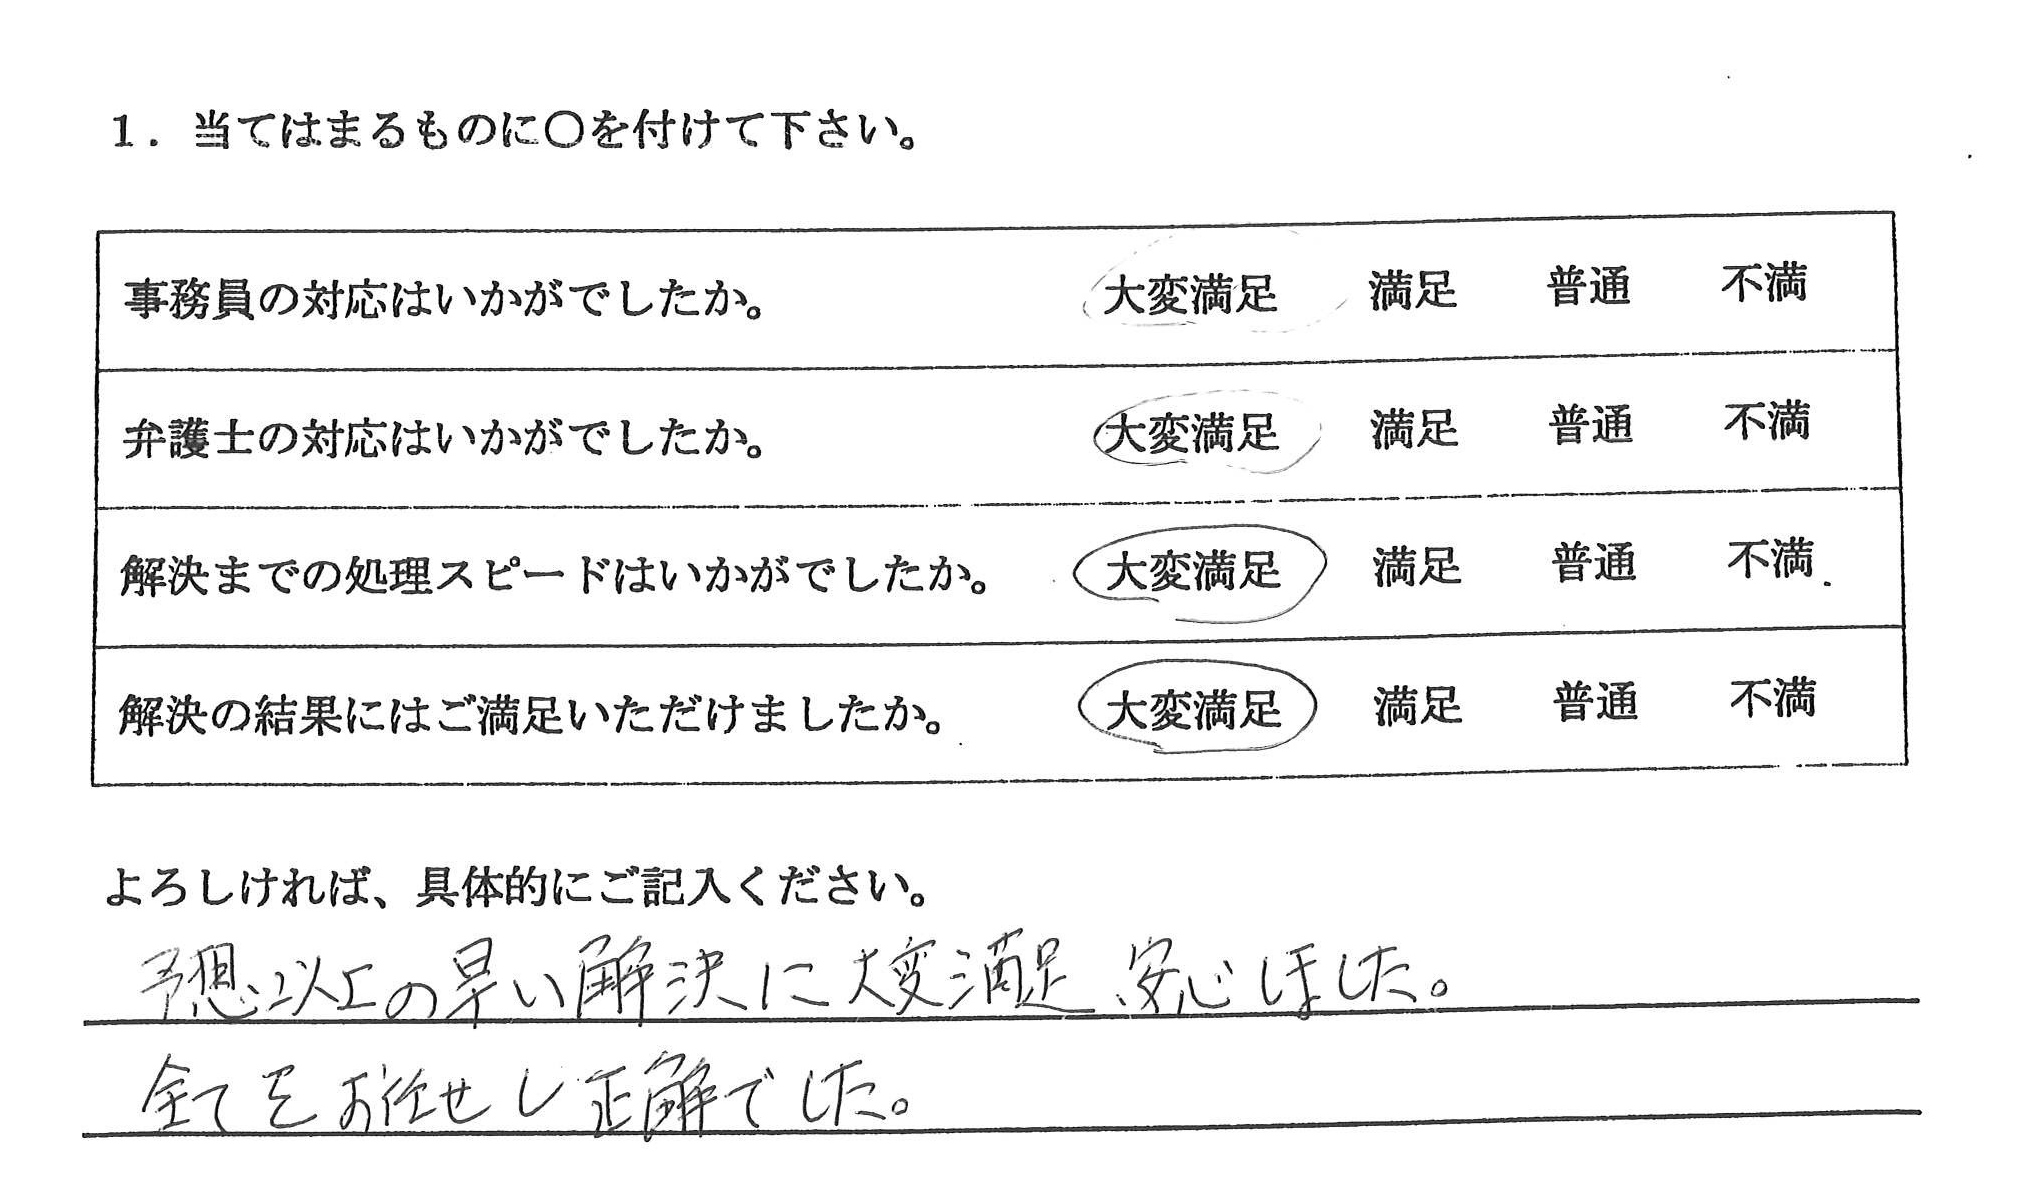 1．当てはまるものに〇を付けて下さい。
事務員の対応はいかがでしたか。 大変満足 満足 普通 不満
弁護士の対応はいかがでしたか。 大変満足 満足 普通 不満
解決までの処理スピードはいかがでしたか。 大変満足 満足 普通 不満
解決の結果にはご満足いただけましたか。 大変満足 満足 普通 不満
よろしければ、具体的にご記入ください。
予想以上の早い解決に大変満足、安心しました。
全てをお任せし正解でした。